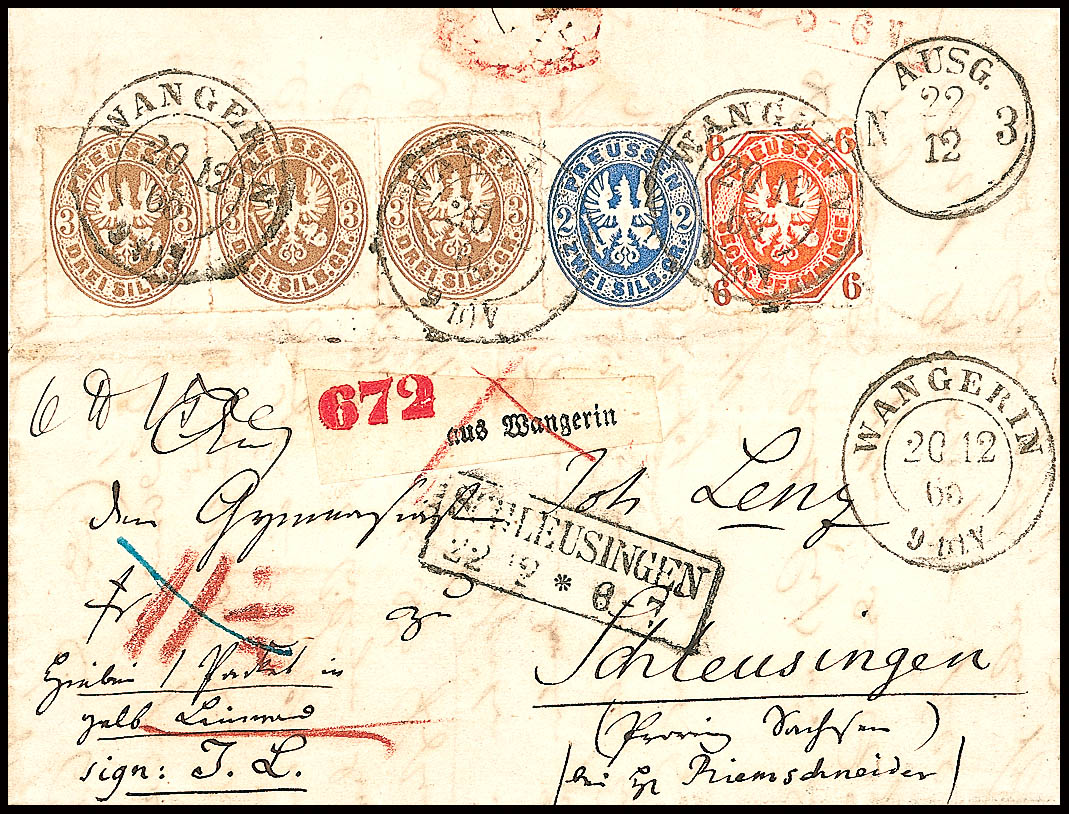 AUSG.
22
12
N 3
WANGERIN
20 12
66
9-10 V
PREUSSEN
3 3
DREI SILB. GR.
PREUSSEN
3 3
DREI SILB. GR.
PREUSSEN
3 3
DREI SILB. GR.
PREUSSEN
2 2
ZWEI SILB. GR.
6 6
PREUSSEN
SECHS PFENNINGE
6 6
WANGERIN
9-10 V
WANGERIN
672
aus Wangerin
WANGERIN
20 12
66
9-10 V
den Gymnasiasten Joh Lenz
SCHLEUSINGEN
22 12 * 6-7
fr
zu
Schleusingen
Hiebei 1 Packet in
gelb Leinwand
sign: J. L.
(Provinz Sachsen)
bei Riemschneider